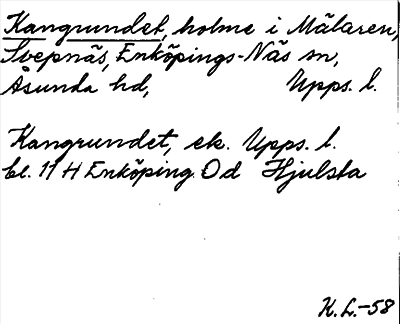 Kangrundet, holme i Mälaren,
Svepnäs, Enköpings-Näs sn,
Åsunda hd, Upps. l.
Kangrundet, ek. Upps. l.
bl. 11 H Enköping 0d Hjulsta
K. L.-58